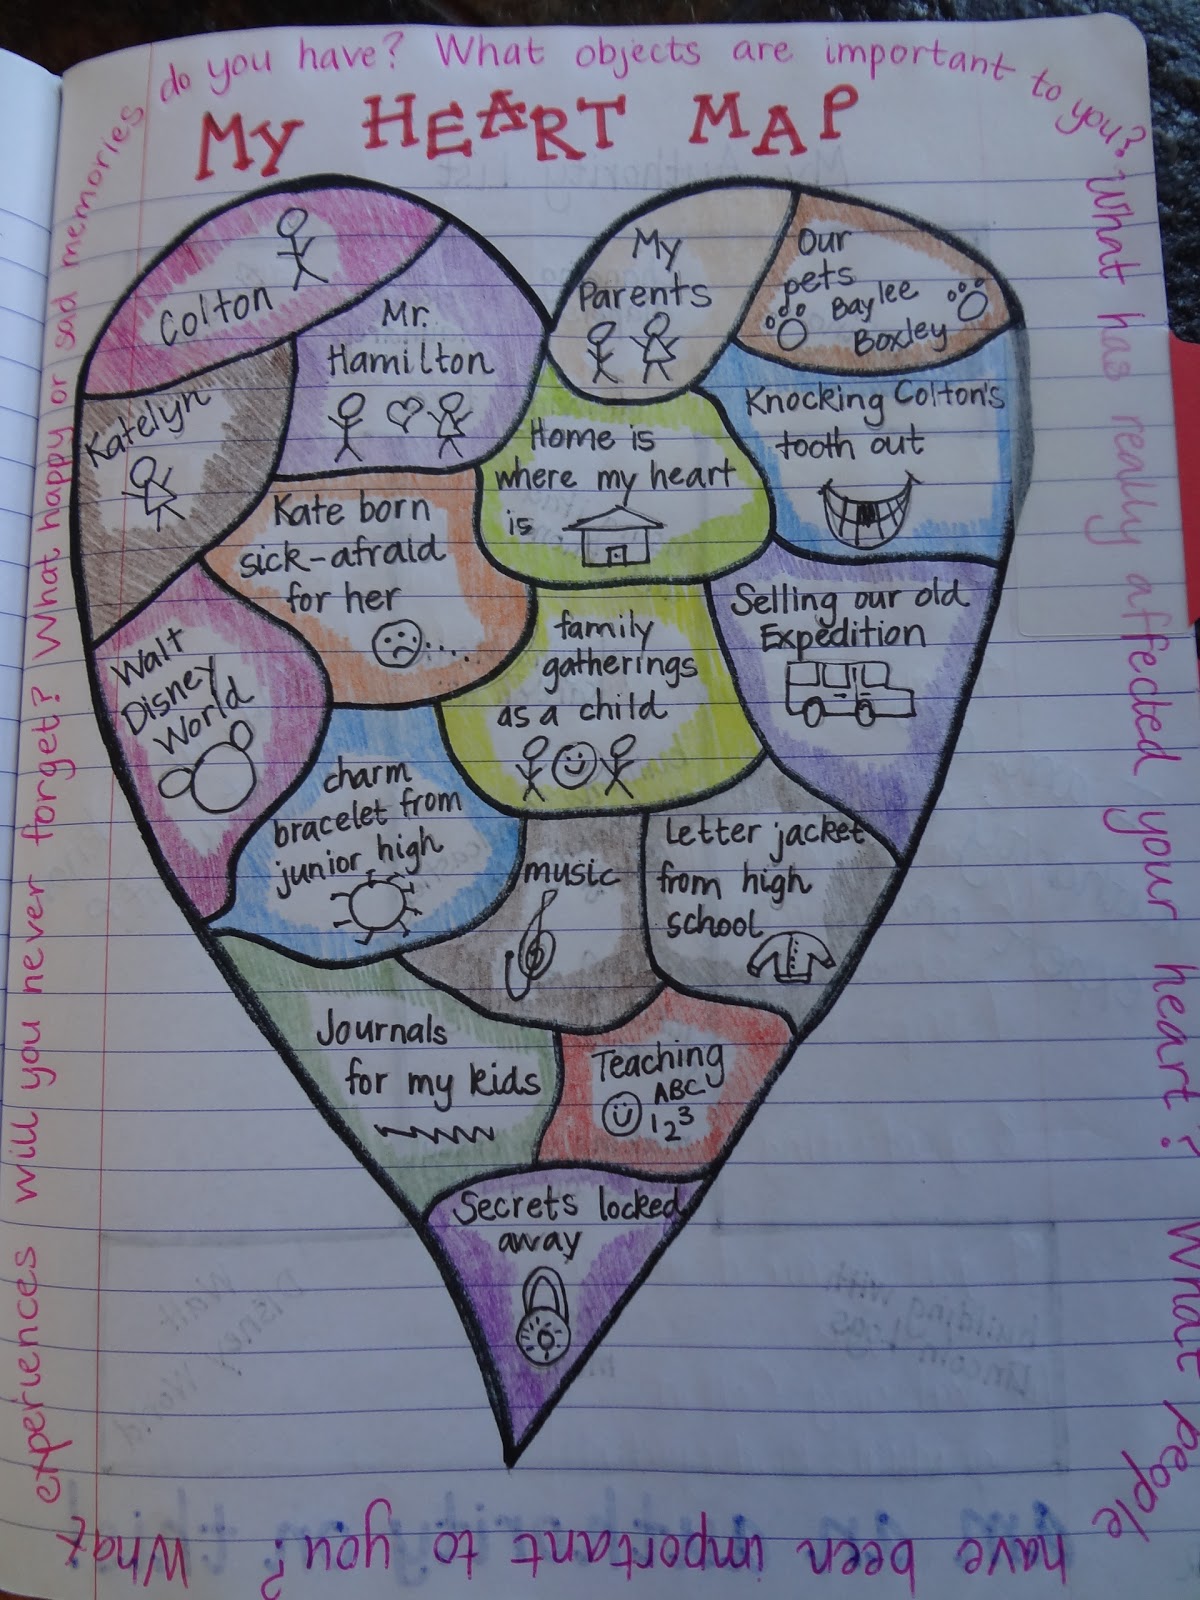 MY HEART MAP
Colton
Mr.
Hamilton
My
Parents
Our
pets
Baylee
Boxley
Katelyn
Kate born
sick-afraid
for her
Home is
where my heart
is
Knocking Colton's
tooth out
Walt
Disney
World
family
gatherings
as a child
Selling our old
Expedition
charm
bracelet from
junior high
music
Letter jacket
from high
school
Journals
for my kids
Teaching
ABC
123
Secrets locked
away
What has really affected your heart? What people
have been important to you? What
experiences will you never forget? What happy or sad memories
do you have? What objects are important to you?
My Authority List
Walt
Disney World
building with
Lincoln Logs